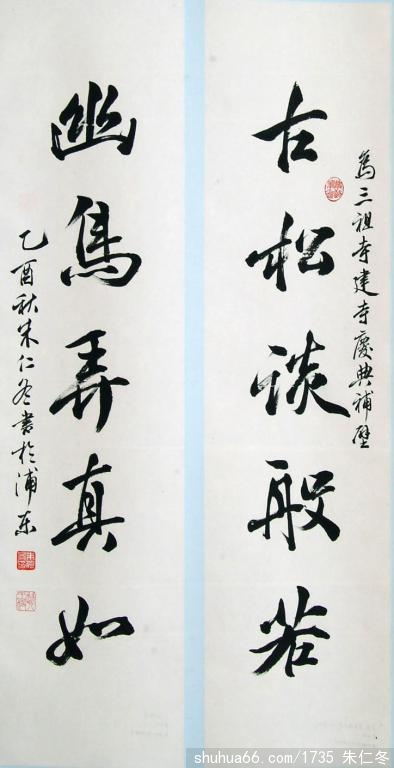 為三祖寺建寺慶典補壁
古松談般若
幽鳥弄真如
乙酉秋朱仁冬書於浦东
shuhua66.com/1735 朱仁冬